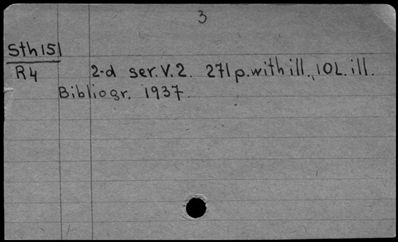 3
Sth 151
R4 2-d ser. V. 2. 271 p. with ill., 10 L. ill.
Bibliogr. 1937.